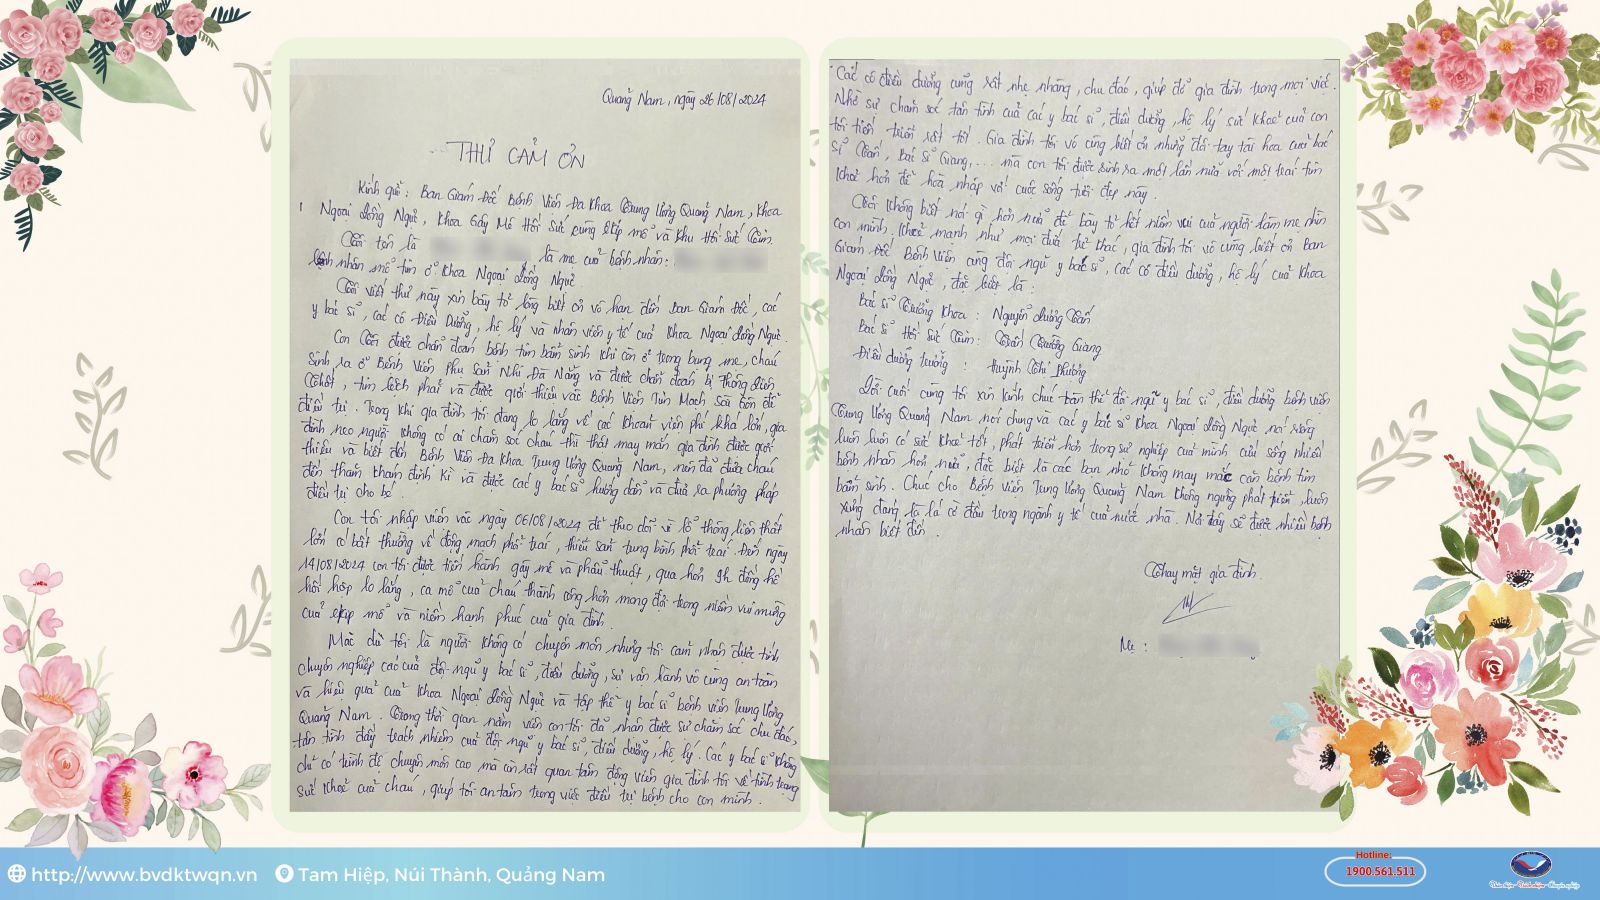 Quảng Nam, ngày 26/08/2024
THƯ CẢM ƠN
Kính gửi: Ban Giám Đốc Bệnh Viện Đa Khoa Trung Ương Quảng Nam, Khoa
Ngoại Lồng Ngực, Khoa Gây Mê Hồi Sức cùng êkip mổ và khu Hồi Sức Tim.
Tôi tên là là mẹ của bệnh nhân:
bệnh nhân mổ tim ở Khoa Ngoại Lồng Ngực.
Tôi viết thư này xin bày tỏ lòng biết ơn vô hạn đến Ban Giám Đốc, các
y bác sĩ, các cô Điều Dưỡng, hộ lý và nhân viên y tế của Khoa Ngoại Lồng Ngực.
Con tôi được chẩn đoán bệnh tim bẩm sinh khi còn ở trong bụng mẹ, cháu
sinh ra ở Bệnh Viện Phụ Sản Nhi Đà Nẵng và được chẩn đoán bị thông liên
thất, tim lệch phải và được giới thiệu vào Bệnh Viện Tim Mạch Sài Gòn để
điều trị. Trong khi gia đình tôi đang lo lắng về các khoản viện phí khá lớn, gia
đình neo người không có ai chăm sóc cháu thì thật may mắn gia đình được giới
thiệu và biết đến Bệnh Viện Đa Khoa Trung Ương Quảng Nam, nên đã đưa cháu
đến thăm khám định kì và được các y bác sĩ hướng dẫn và đưa ra phương pháp
điều trị cho bé.
Con tôi nhập viện vào ngày 06/08/2024 để theo dõi về lỗ thông liên thất
lớn có bất thường về động mạch phổi trái, thiểu sản trung bình phổi trái. Đến ngày
14/08/2024 con tôi được tiến hành gây mê và phẫu thuật, qua hơn 9h đồng hồ
hồi hộp lo lắng, ca mổ của cháu thành công hơn mong đợi trong niềm vui mừng
của êkip mổ và niềm hạnh phúc của gia đình.
Mặc dù tôi là người không có chuyên môn nhưng tôi cảm nhận được tính
chuyên nghiệp cao của đội ngũ y bác sĩ, điều dưỡng, sự vận hành vô cùng an toàn
và hiệu quả của Khoa Ngoại Lồng Ngực và tập thể y bác sĩ bệnh viện Trung Ương
Quảng Nam. Trong thời gian nằm viện con tôi đã nhận được sự chăm sóc chu đáo,
tận tình đầy trách nhiệm của đội ngũ y bác sĩ, điều dưỡng, hộ lý. Các y bác sĩ không
chỉ có trình độ chuyên môn cao mà còn rất quan tâm động viên gia đình tôi về tình trạng
sức khoẻ của cháu, giúp tôi an tâm trong việc điều trị bệnh cho con mình.
Các cô điều dưỡng cũng rất nhẹ nhàng, chu đáo, giúp đỡ gia đình trong mọi việc.
Nhờ sự chăm sóc tận tình của các y bác sĩ, điều dưỡng, hộ lý sức khoẻ của con
tôi tiến triển rất tốt. Gia đình tôi vô cùng biết ơn những đôi tay tài hoa của bác
sĩ Tấn, Bác sĩ Giang,... mà con tôi được sinh ra một lần nữa với một trái tim
khoẻ hơn để hoà nhập với cuộc sống tươi đẹp này.
Tôi không biết nói gì hơn nữa để bày tỏ hết niềm vui của người làm mẹ nhìn
con mình khoẻ mạnh như mọi đứa trẻ khác, gia đình tôi vô cùng biết ơn Ban
Giám Đốc Bệnh Viện cùng đội ngũ y bác sĩ, các cô điều dưỡng, hộ lý của Khoa
Ngoại Lồng Ngực, đặc biệt là:
Bác sĩ Trưởng Khoa: Nguyễn Lương Tấn
Bác sĩ Hồi Sức Tim: Trần Trường Giang
Điều dưỡng trưởng: Huỳnh Thị Phượng
Lời cuối cùng tôi xin kính chúc toàn thể đội ngũ y bác sĩ, điều dưỡng bệnh viện
Trung Ương Quảng Nam nói chung và các y bác sĩ Khoa Ngoại Lồng Ngực nói riêng
luôn luôn có sức khoẻ tốt, phát triển hơn trong sự nghiệp của mình cứu sống nhiều
bệnh nhân hơn nữa, đặc biệt là các bạn nhỏ không may mắc căn bệnh tim
bẩm sinh. Chúc cho Bệnh Viện Trung Ương Quảng Nam không ngừng phát triển, luôn
xứng đáng là lá cờ đầu trong ngành y tế của nước nhà. Nơi đây sẽ được nhiều bệnh
nhân biết đến.
Thay mặt gia đình.
Mẹ:
http://www.bvdktwqn.vn Tam Hiệp, Núi Thành, Quảng Nam
Hotline:
1900.561.511